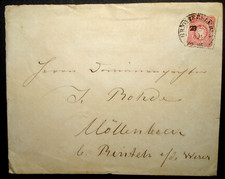 Herrn Domänenpächter
J. Rohde
Möllenbeck
b. Rinteln a/d Weser